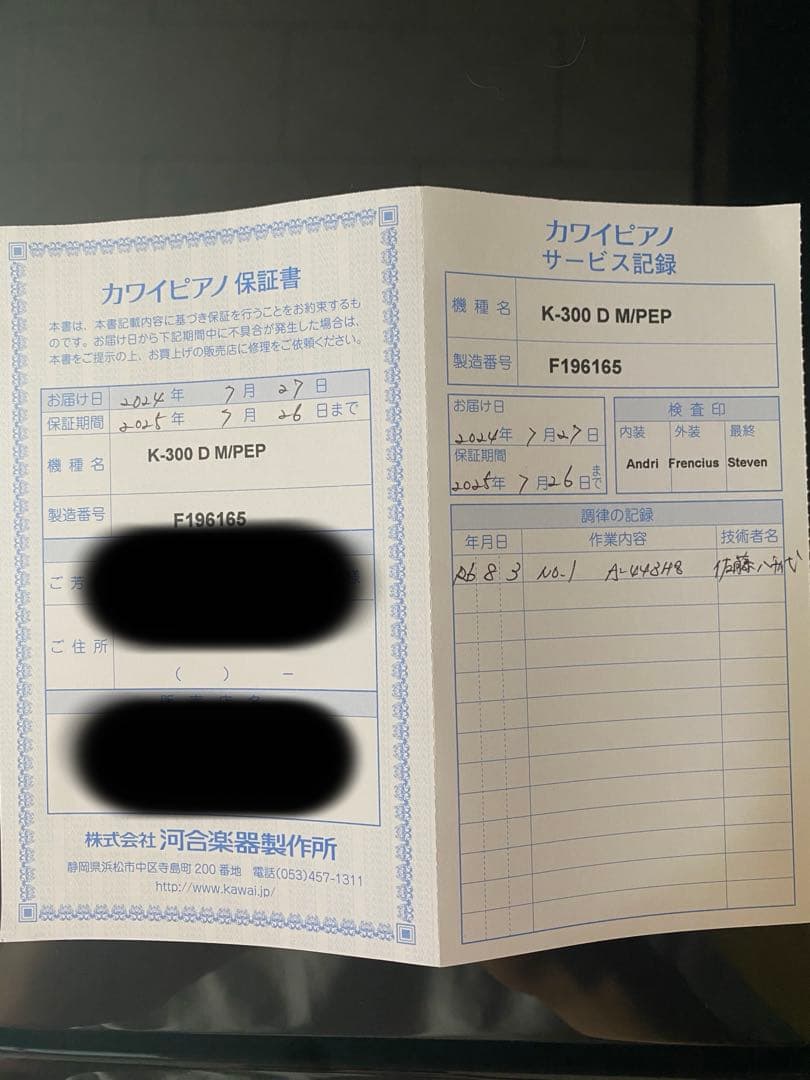 カワイピアノ 保証書
本書は、本書記載内容に基づき保証を行うことをお約束するも
のです。お届け日から下記期間中に不具合が発生した場合は、
本書をご提示の上、お買上げの販売店に修理をご依頼ください。
お届け日 2024年 7月 27日
保証期間 2025年 7月 26日まで
機種名 K-300 D M/PEP
製造番号 F196165
ご芳
ご住所
( ) −
株式会社 河合楽器製作所
静岡県浜松市中区寺島町200番地 電話(053)457-1311
http://www.kawai.jp/
カワイピアノ
サービス記録
機種名 K-300 D M/PEP
製造番号 F196165
お届け日
2024年 7月27日
保証期間
2025年 7月26日まで
検査印
内装 外装 最終
Andri Frencius Steven
調律の記録
年月日 作業内容 技術者名
R6 8 3 No.1 A-443Hz 佐藤